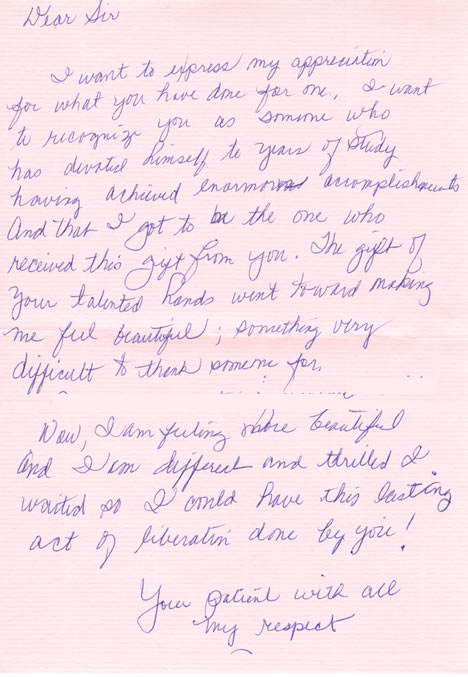 Dear Sir
I want to express my appreciation
for what you have done for one. I want
to recognize you as someone who
has devoted himself to years of study
having achieved enormous acomplishments
And that I got to be the one who
received this gift from you. The gift of
Your talented hands went toward making
me feel beautiful; something very
difficult to thank someone for.
Now, I am feeling more beautiful
And I am different and thrilled I
waited so I could have this lasting
act of liberation done by you!
Your patient with all
my respect